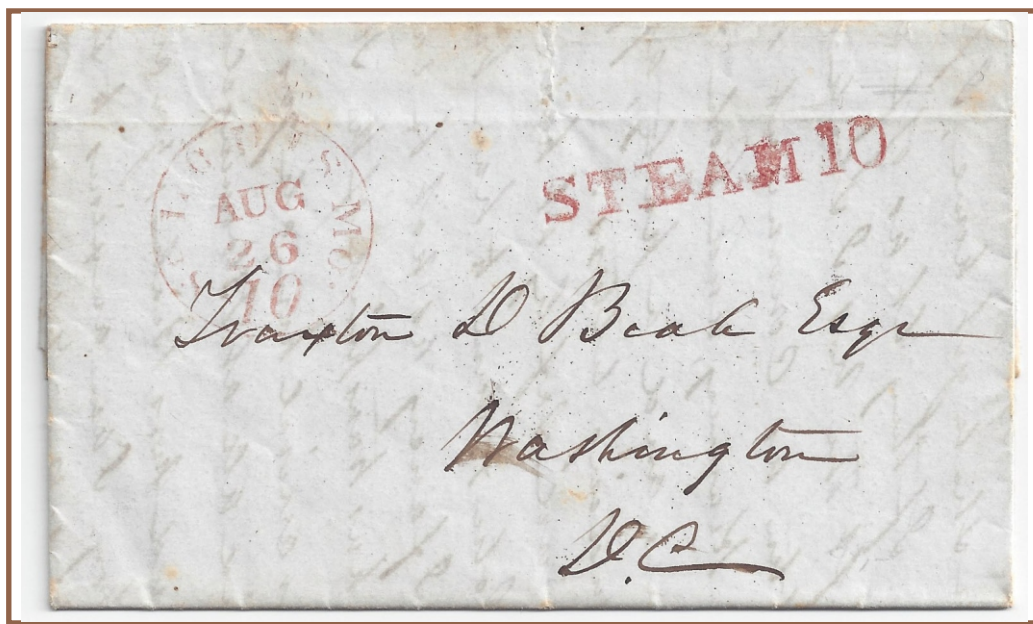 ST. LOUIS MO.
AUG
26
10
STEAM 10
Truxton D Beale Esqr
Washington
D.C